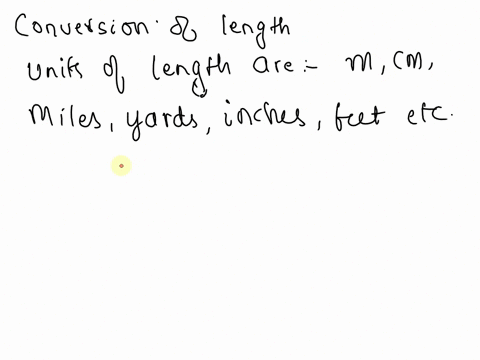 Conversion of length
units of length are :- m, cm,
Miles, yards, inches, feet etc.